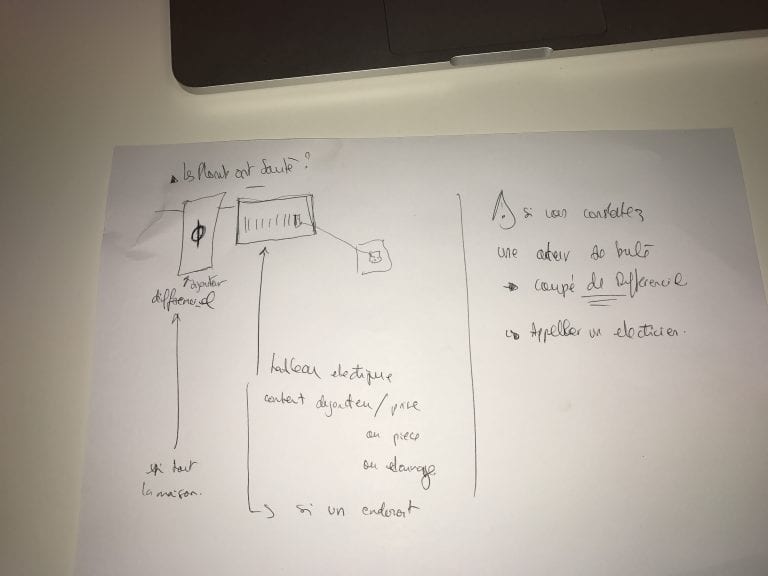 les Plomb ont sauté ?
disjoncteur
différenciel
si tout
la maison.
tableau electrique
contient disjoncteur / prise
ou piece
ou eclairage
↳ si un endroit
⚠ si vous constatez
une odeur de brulé
→ Coupé de Differenciel
↳ Appeller un electricien.